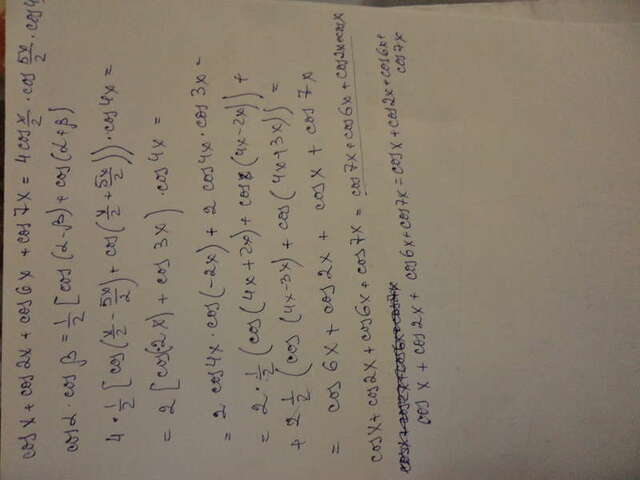 cosx + cos2x + cos6x + cos7x = 4cos x/2 · cos 5x/2 · cos4
cosα cosβ = 1/2 [cos(α-β) + cos(α+β)]
4 · 1/2 [cos(x/2 - 5x/2) + cos(x/2 + 5x/2)) · cos4x =
= 2 [cos(-2x) + cos3x) · cos4x =
= 2 cos4x · cos(-2x) + 2 cos4x · cos3x =
= 2 · 1/2 (cos(4x+2x) + cos(4x-2x)) +
+ 2 1/2 (cos(4x-3x) + cos(4x+3x)) =
= cos6x + cos2x + cosx + cos7x
cosx + cos2x + cos6x + cos7x = cos7x + cos6x + cos2x + cosx
cosx + cos2x + cos6x + cos7x
cosx + cos2x + cos6x + cos7x = cosx + cos2x + cos6x + cos7x